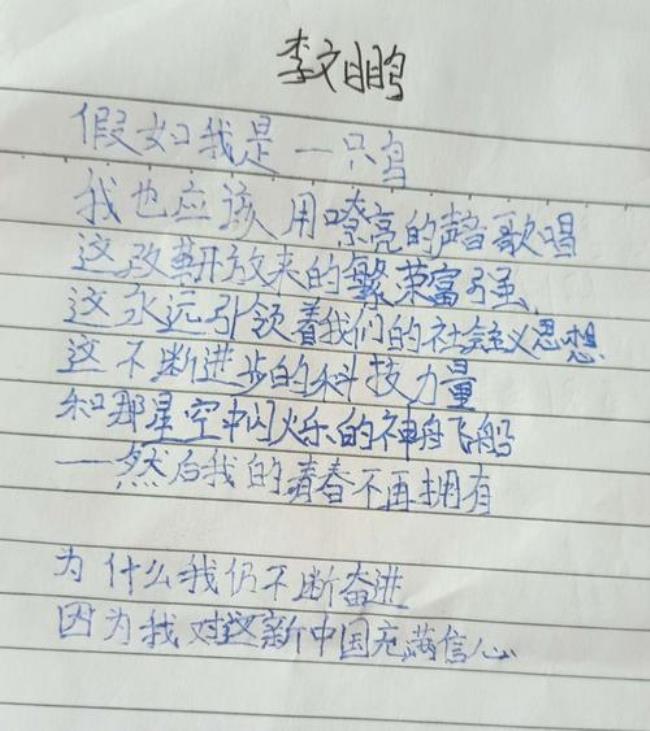 李文鹏
假如我是一只鸟
我也应该用嘹亮的声音歌唱
这改革开放来的繁荣富强
这永远引领着我们的社会主义思想
这不断进步的科技力量
和那星空中闪烁的神舟飞船
——然后我的青春不再拥有
为什么我仍不断奋进
因为我对这新中国充满信心